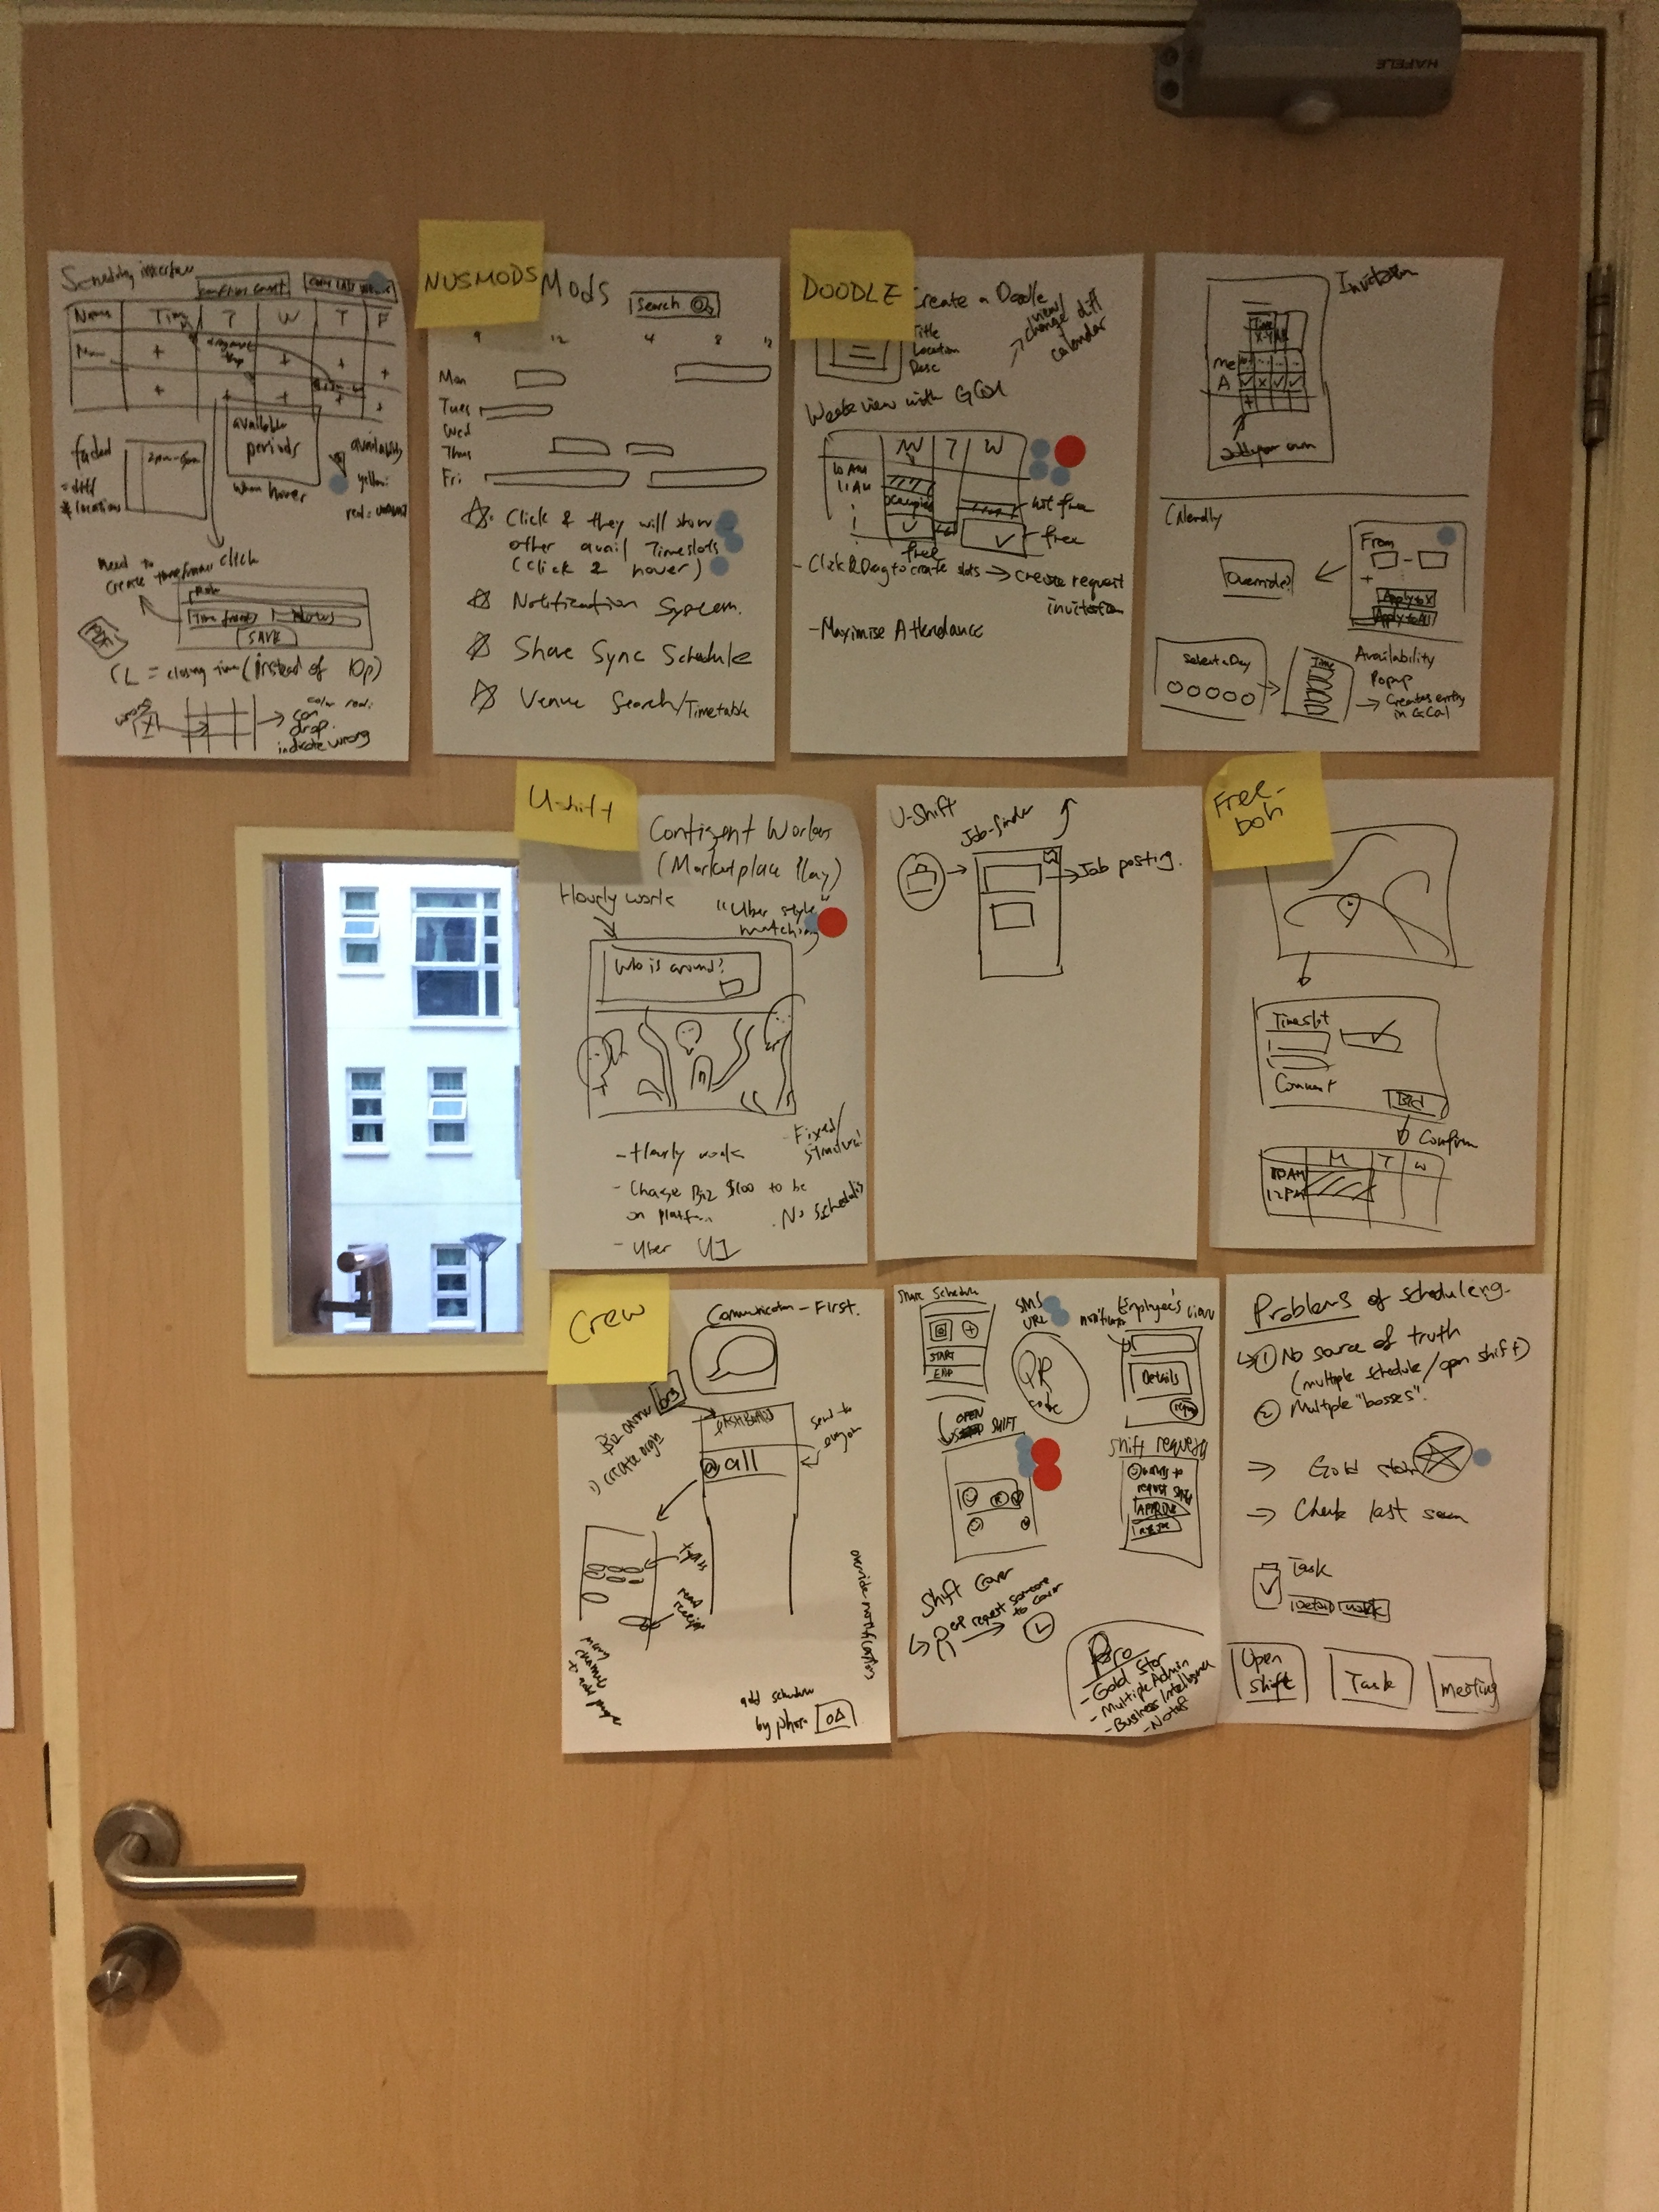 HAFELE
Scheduling interface
Name
T
W
T
F
available
periods
when hover
availability
yellow:
faded
= diff
locations
2pm-6pm
need to
create timeframe
click
Time frames
SAVE
CL = closing time (instead of 10p)
wrong
color red:
can
drop
indicate wrong
NUSMODS
Mods
Search
9
12
4
8
12
Mon
Tues
Wed
Thus
Fri
Click & they will show
other avail Timeslots
(click 2 hover)
Notification System.
Share Sync Schedule
Venue Search/Timetable
DOODLE
Create a Doodle
Title
Location
Desc
view/
change diff
calendar
Week view with GCal
M
T
W
10 AM
11 AM
occupied
not free
free
free
- Click & Drag to create slots → create request
invitation
- Maximise Attendance
Invitation
Time
me
A
add your own
Calendly
From
+
Override?
Apply to X
Apply to All
Select a Day
Time
Availability
Popup
→ Creates entry
in GCal
U-shift
Contigent Workers
(Marketplace Play)
Hourly work
"Uber style"
matching
Who is around?
- Hourly work
- Fixed/
- Charge Biz $100 to be
on platform
- Uber UI
U-Shift
Job-finder
Job posting.
Free-
boh
Timeslot
Comment
Confirm
M
T
W
10AM
12PM
Crew
Communication - First.
Biz owner
1) create orgn
DASHBOARD
@all
send to
everyone
read
receipt
override notifications
add schedule
by photo
Share Schedule
START
END
SMS
URL
QR
code
Employee's view
Details
OPEN
SHIFT
Shift request
APPROVE
Shift Cover
request someone
to cover
Pro
- Gold Star
- Multiple Admin
- Business Intelligence
- Notif
Problems of scheduling.
① No source of truth
(multiple schedule/open shift)
② Multiple "bosses".
→ Gold star
→ Check last seen
Task
Open
Shift
Task
meeting